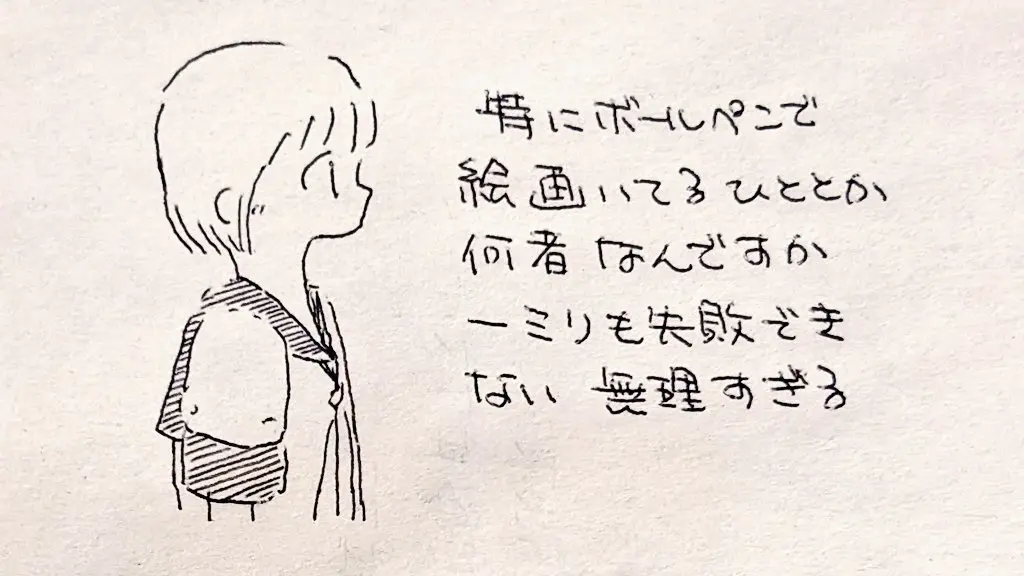 特にボールペンで
絵画いてるひととか
何者なんですか
一ミリも失敗でき
ない無理すぎる